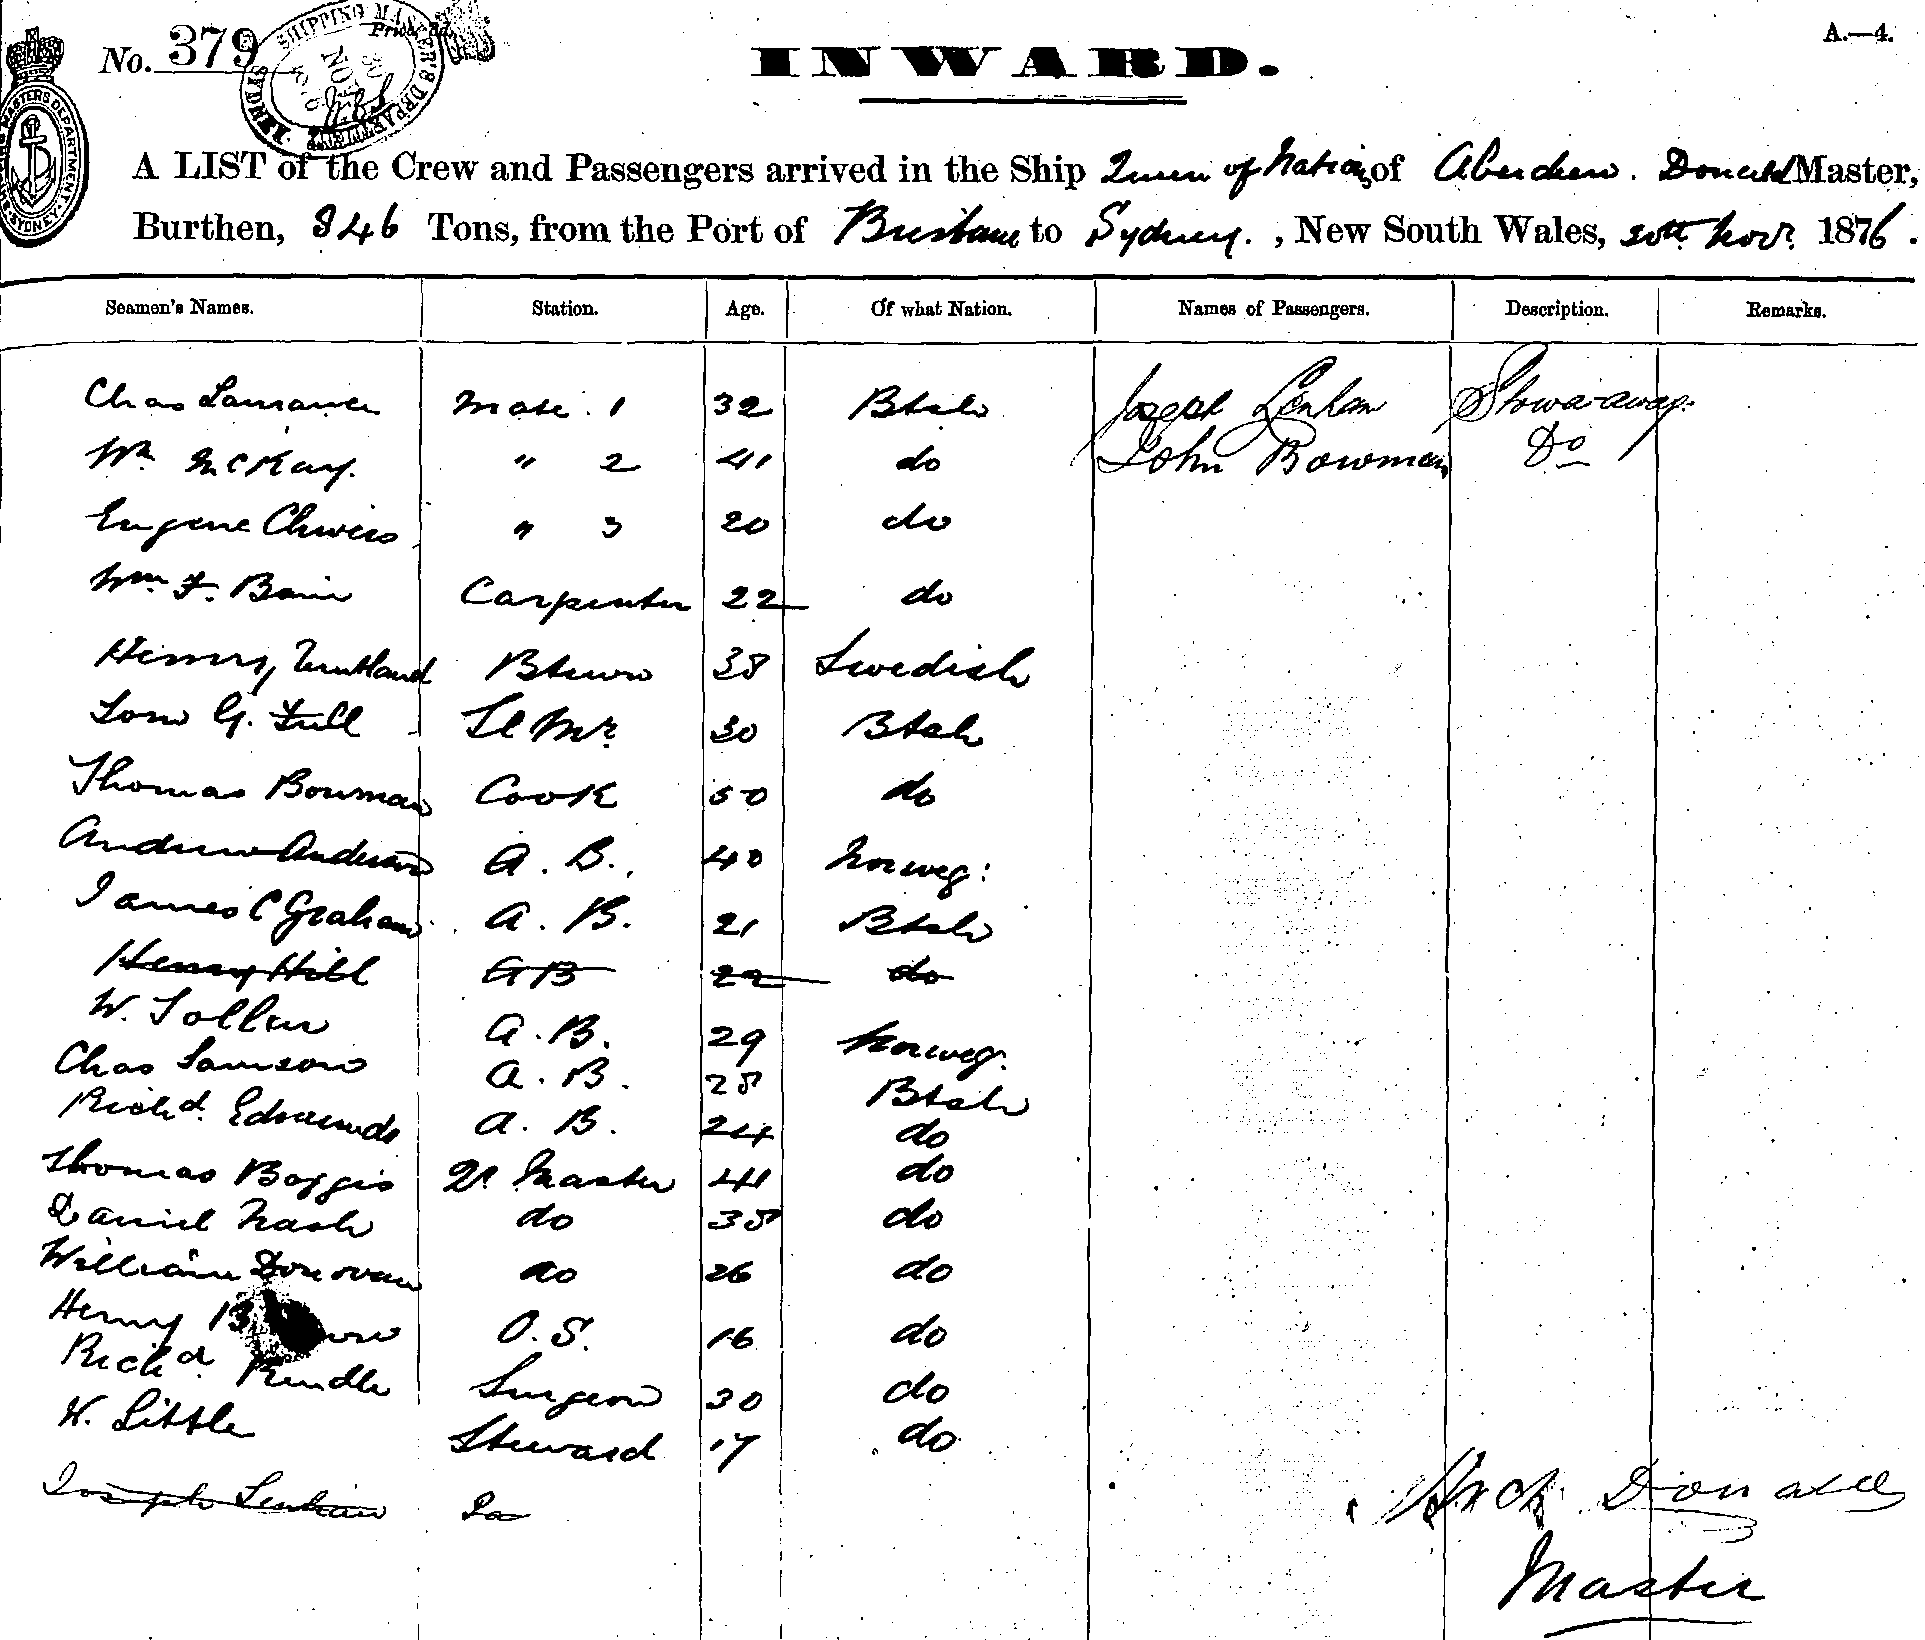 No. 379
INWARD.
A.—4.
A LIST of the Crew and Passengers arrived in the Ship Queen of Nations of Aberdeen. Donald Master,
Burthen, 846 Tons, from the Port of Brisbane to Sydney. , New South Wales, Novr. 1876.
Seamen's Names. Station. Age. Of what Nation. Names of Passengers. Description. Remarks.
Chas Mate. 1 32 Btsh Joseph Lenhan Stowaway.
Wm McKay. " 2 41 do John Bowman Do
Eugene " 3 20 do
Wm F. Bain Carpenter 22 do
Henry 38 Swedish
G. Full Sl Mr 30 Btsh
Thomas Bowman Cook 50 do
Andrew Anderson A. B. 40 Norweg:
James C Graham A. B. 21 Btsh
Henry Hill AB 22 do
W. A. B. 29 Norweg.
Chas Samson A. B. 28 Btsh
Richd. Edmunds A. B. 24 do
Thomas Boggis Qr Master 41 do
Daniel Nash do 38 do
William Donovan do 26 do
Henry O. S. 16 do
Richd. Rendle Surgeon 30 do
W. Little Steward 17 do
Joseph Lenhan
Arch Donald
Master